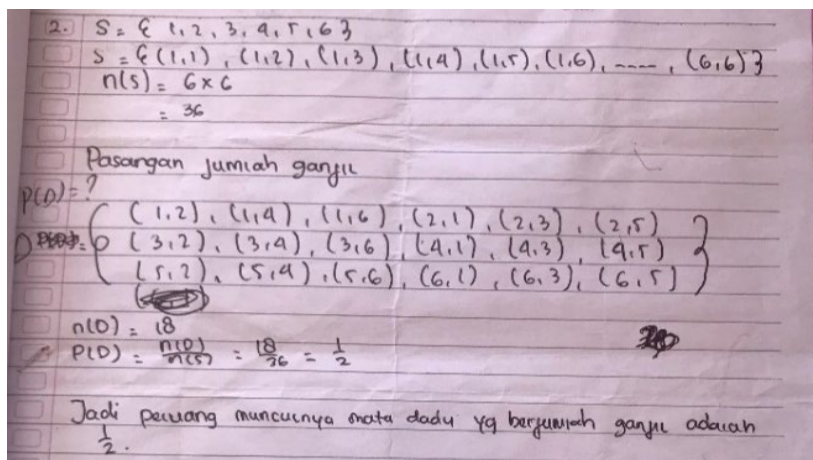 2. S = { 1, 2, 3, 4, 5, 6 }
S = { (1,1), (1,2), (1,3), (1,4), (1,5), (1,6), ----, (6,6) }
n(S) = 6 x 6
= 36
Pasangan jumlah ganjil
P(D) = ?
D = { (1,2), (1,4), (1,6), (2,1), (2,3), (2,5)
(3,2), (3,4), (3,6), (4,1), (4,3), (4,5)
(5,2), (5,4), (5,6), (6,1), (6,3), (6,5) }
n(D) = 18
P(D) = n(D)/n(S) = 18/36 = 1/2
Jadi peluang munculnya mata dadu yg berjumlah ganjil adalah
1/2.